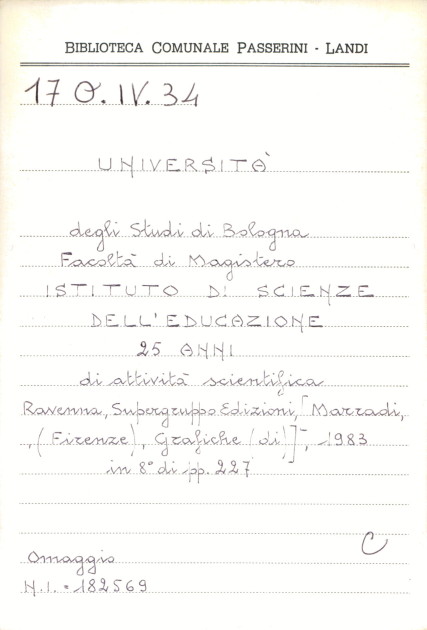 BIBLIOTECA COMUNALE PASSERINI - LANDI
17 O. IV. 34
UNIVERSITÀ
degli Studi di Bologna
Facoltà di Magistero
ISTITUTO DI SCIENZE
DELL'EDUCAZIONE
25 ANNI
di attività scientifica
Ravenna, Supergruppo Edizioni, [Marradi,
, (Firenze), Grafiche (di)], 1983
in 8° di pp. 227
C
Omaggio
N.I. = 182569